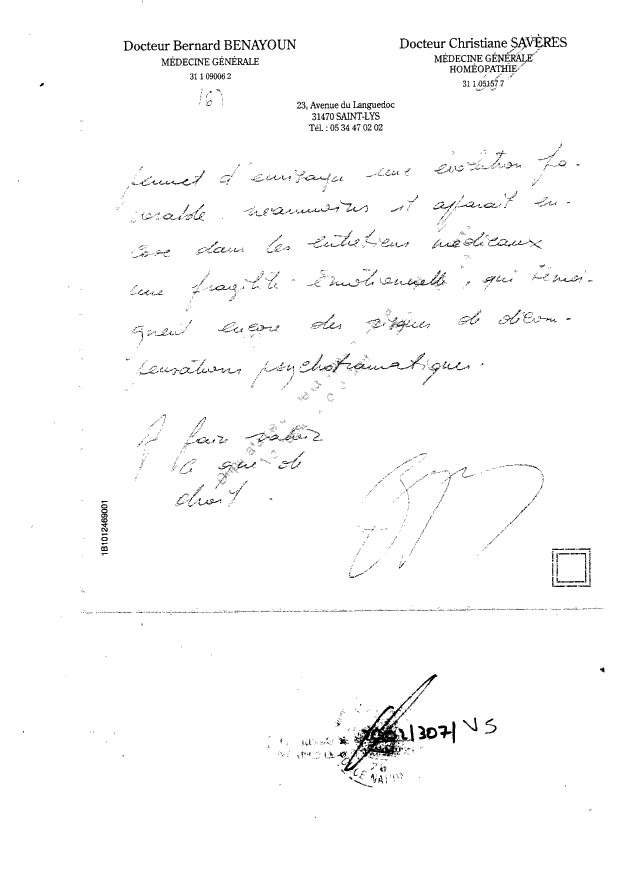 Docteur Bernard BENAYOUN
MÉDECINE GÉNÉRALE
31 1 09006 2
Docteur Christiane SAVÈRES
MÉDECINE GÉNÉRALE
HOMÉOPATHIE
31 1 05157 7
23, Avenue du Languedoc
31470 SAINT-LYS
Tél. : 05 34 47 02 02
permet d'envisager une évolution fa-
vorable, neanmoins il apparait en-
core dans les entretiens médicaux
une fragilité émotionnelle, qui témoi-
gnent encore des risques de décom-
pensations psychotramatiques.
A fair valoir
ce que de
droit.
1B1012469001
/307/ VS